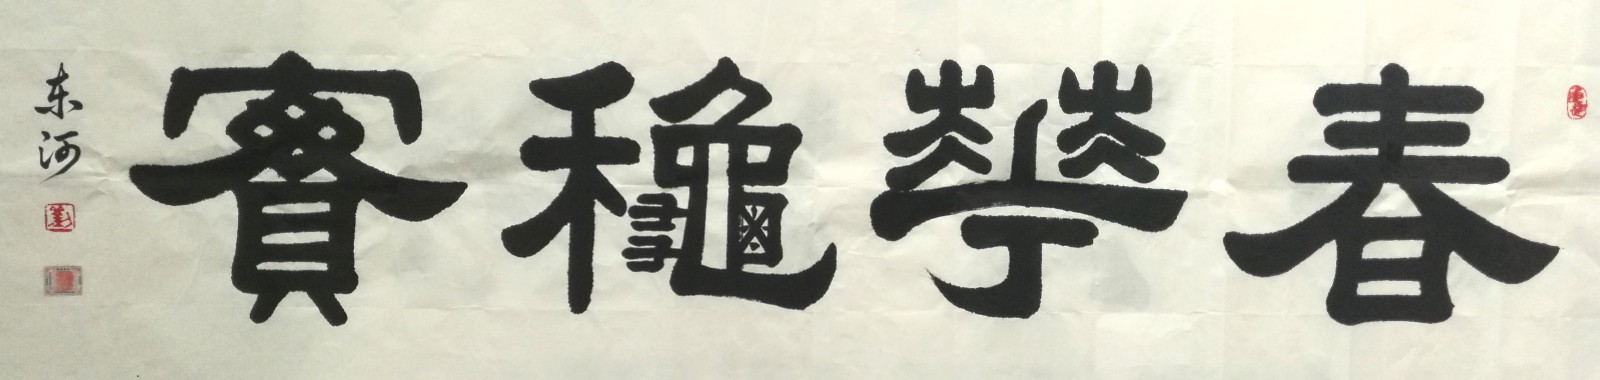 春華龝實
东河